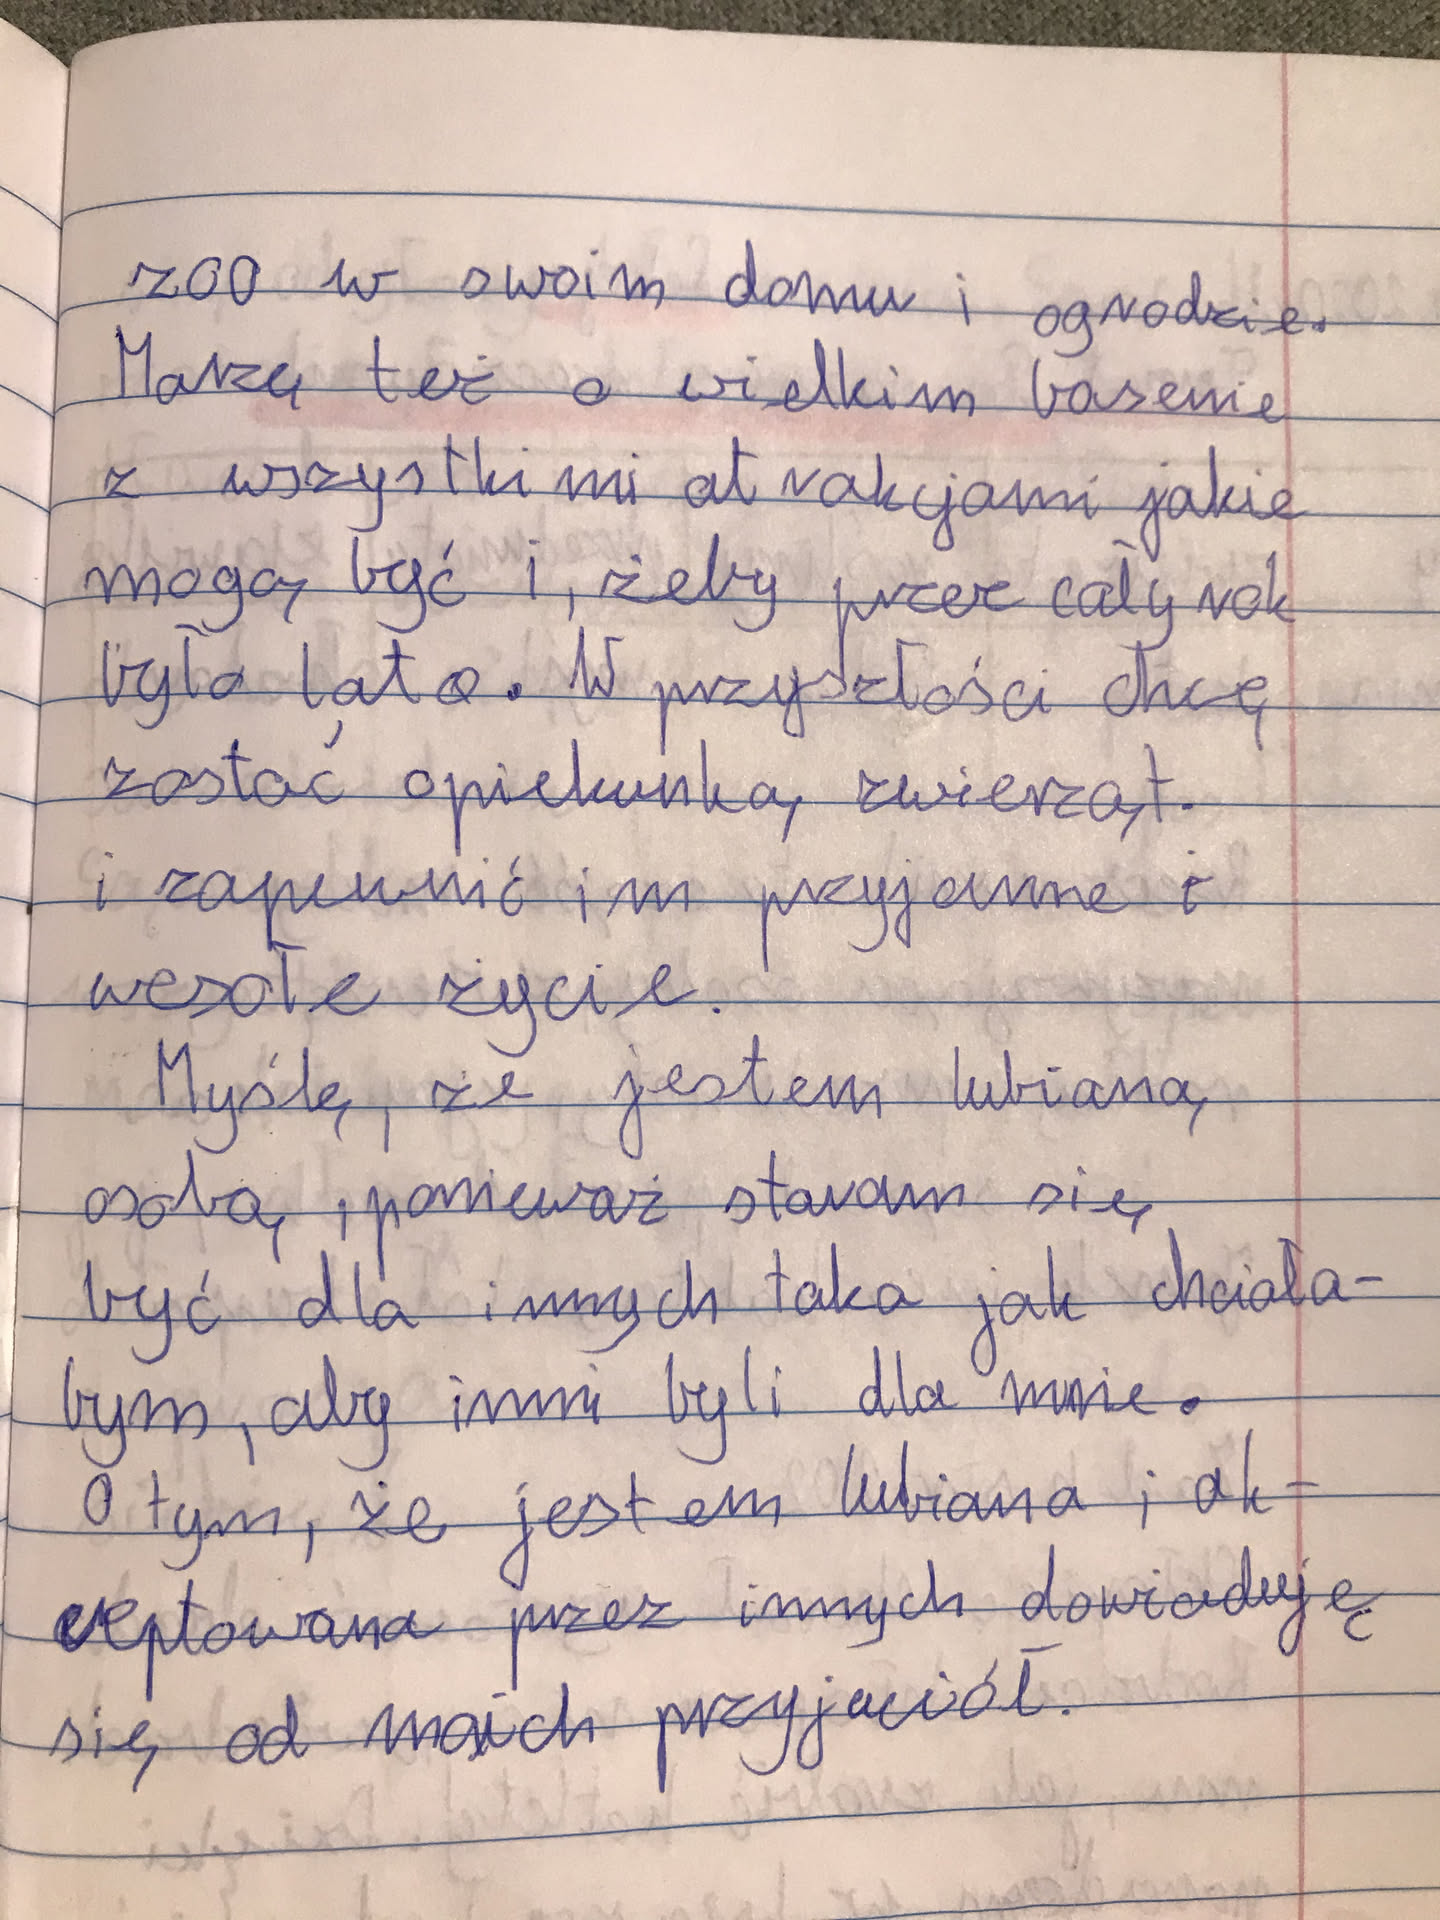 zoo w swoim domu i ogrodzie.
Marzę też o wielkim basenie
z wszystkimi atrakcjami jakie
mogą być i, żeby przez cały rok
było lato. W przyszłości chcę
zostać opiekunką zwierząt.
i zapewnić im przyjemne i
wesołe życie.
Myślę, że jestem lubianą
osobą, ponieważ staram się
być dla innych taka jak chciała-
bym, aby inni byli dla mnie.
O tym, że jestem lubiana i ak-
ceptowana przez innych dowiaduję
się od moich przyjaciół.